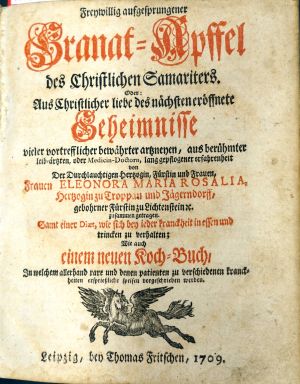 Freywillig aufgesprungener
Granat-Apffel
des Christlichen Samariters.
Oder:
Aus Christlicher liebe des nächsten eröffnete
Geheimnisse
vieler vortrefflicher bewährter artzneyen, aus berühmter
leib-ärtzten, oder Medicin-Doctorn, lang gepflogener erfahrenheit
von
Der Durchlauchtigen Hertzogin, Fürstin und Frauen,
Frauen ELEONORA MARIA ROSALIA,
Hertzogin zu Troppau und Jägerndorff,
gebohrner Fürstin zu Lichtenstein ꝛc.
zusammen getragen.
Samt einer Diæt, wie sich bey jeder kranckheit in essen und
trincken zu verhalten;
Wie auch
einem neuen Koch-Buch,
In welchem allerhand rare und denen patienten zu verschiedenen kranck-
heiten ersprießliche speisen vorgeschrieben werden.
Leipzig, bey Thomas Fritschen, 1709.